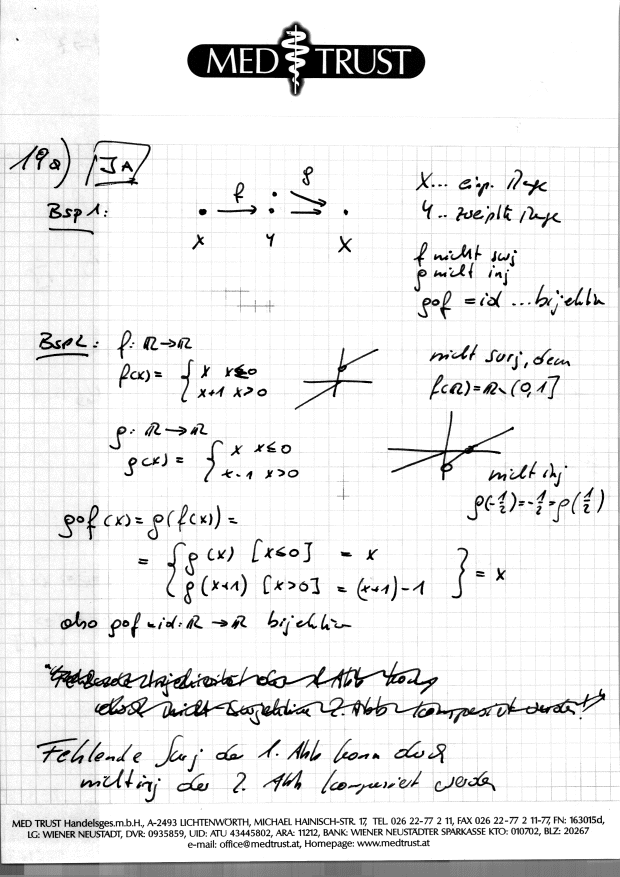 MED TRUST
19a) JA
Bsp 1:
f
g
X
Y
X
X... einp. Menge
Y.. zweiplte Menge
f nicht surj
g nicht inj
g∘f = id ... bijektiv
Bsp 2: f: ℝ→ℝ
f(x) = { x x≤0
x+1 x>0
nicht surj, denn
f(ℝ)=ℝ\(0,1]
g: ℝ→ℝ
g(x) = { x x≤0
x-1 x>0
nicht inj
g(-½)=-½=g(½)
g∘f(x) = g(f(x)) =
= { g(x) [x≤0] = x
g(x+1) [x>0] = (x+1)-1 } = x
also g∘f=id: ℝ→ℝ bijektiv
Fehlende Surj der 1. Abb kann doch
nicht inj der 2. Abb kompensiert werden
MED TRUST Handelsges.m.b.H., A-2493 LICHTENWÖRTH, MICHAEL HAINISCH-STR. 17, TEL. 026 22-77 2 11, FAX 026 22-77 2 11-77, FN: 163015d,
LG: WIENER NEUSTADT, DVR: 0935859, UID: ATU 43445802, ARA: 11212, BANK: WIENER NEUSTÄDTER SPARKASSE KTO: 010702, BLZ: 20267
e-mail: office@medtrust.at, Homepage: www.medtrust.at